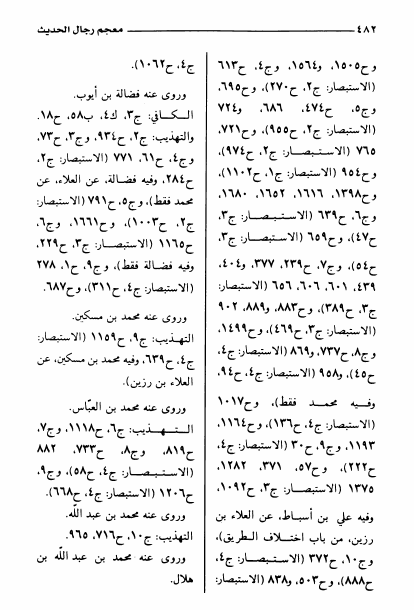 ٤٨٢ معجم رجال الحديث
وح١٥٠٥، و١٥٦٤، وج٤، ح٦١٣
(الاستبصار: ج٢، ح٢٧٠)، وح٦٩٥،
وج٥، ح٤٧٤، ٦٨٦، و٧٢٤
(الاستبصار: ج٢، ح٩٥٥)، وح٧٢١،
٧٦٥ (الاستبصار: ج٢، ح٩٧٤)،
وح٩٥٤ (الاستبصار: ج١، ح١١٠٢)،
وح١٣٩٨، ١٦١٦، ١٦٥٢، ١٦٨٠،
وج٦، ح٦٣٩ (الاستبصار: ج٣،
ح٤٧)، وح٦٥٩ (الاستبصار: ج٣،
ح٥٤)، وج٧، ح٢٣٩، ٣٧٧، و٤٠٤،
٤٣٩، ٦٠١، ٦٠٦، ٦٥٦ (الاستبصار:
ج٣، ح٣٨٩)، وح٨٨٣، و٨٨٩، ٩٠٢
(الاستبصار: ج٣، ح٤٦٩)، وح١٤٩٩،
وج٨، ح٧٣٧، و٨٦٩ (الاستبصار: ج٤،
ح٤٥)، و٩٥٨ (الاستبصار: ج٤، ح٩٤،
وفيه محمد فقط)، وح١٠١٧
(الاستبصار: ج٤، ح١٣٦)، وح١١٦٤،
١١٩٣، وج٩، ح٣٠ (الاستبصار: ج٤،
ح٢٢٢)، وح٥٧، ٣٧١، ١٢٨٢،
١٣٧٥ (الاستبصار: ج٣، ح١٠٩٢،
وفيه علي بن أسباط، عن العلاء بن
رزين، من باب اختلاف الطريق)،
وج١٠، ح٣٧٢ (الاستبصار: ج٤،
ح٨٨٨)، وح٥٠٣، و٨٣٨ (الاستبصار:
ج٤، ح١٠٦٢).
وروى عنه فضالة بن أيوب.
الكافي: ج٣، ك٤، ب٥٨، ح١٨.
والتهذيب: ج٢، ح٩٣٤، وج٣، ح٧٣،
وج٤، ح٦١، ٧٧١ (الاستبصار: ج٢،
ح٢٨٤، وفيه فضالة، عن العلاء، عن
محمد فقط)، وج٥، ح٧٩١ (الاستبصار:
ج٢، ح١٠٠٣)، وح١٦٦١، وج٦،
ح١١٦٥ (الاستبصار: ج٣، ح٢٢٩،
وفيه فضالة فقط)، وج٩، ح١، ٢٧٨
(الاستبصار: ج٤، ح٣١١)، وح٦٨٧.
وروى عنه محمد بن مسكين.
التهذيب: ج٩، ح١١٥٩ (الاستبصار:
ج٤، ح٦٣٩، وفيه محمد بن مسكين، عن
العلاء بن رزين).
وروى عنه محمد بن العبّاس.
التهذيب: ج٦، ح١١١٨، وج٧،
ح٨١٩، وج٨، ح٧٣٣، ٨٨٢
(الاستبصار: ج٤، ح٥٨)، وج٩،
ح١٢٠٦ (الاستبصار: ج٤، ح٦٦٨).
وروى عنه محمد بن عبد اللّه.
التهذيب: ج١٠، ح٧١٦، ٩٦٥.
وروى عنه محمد بن عبد اللّه بن
هلال.